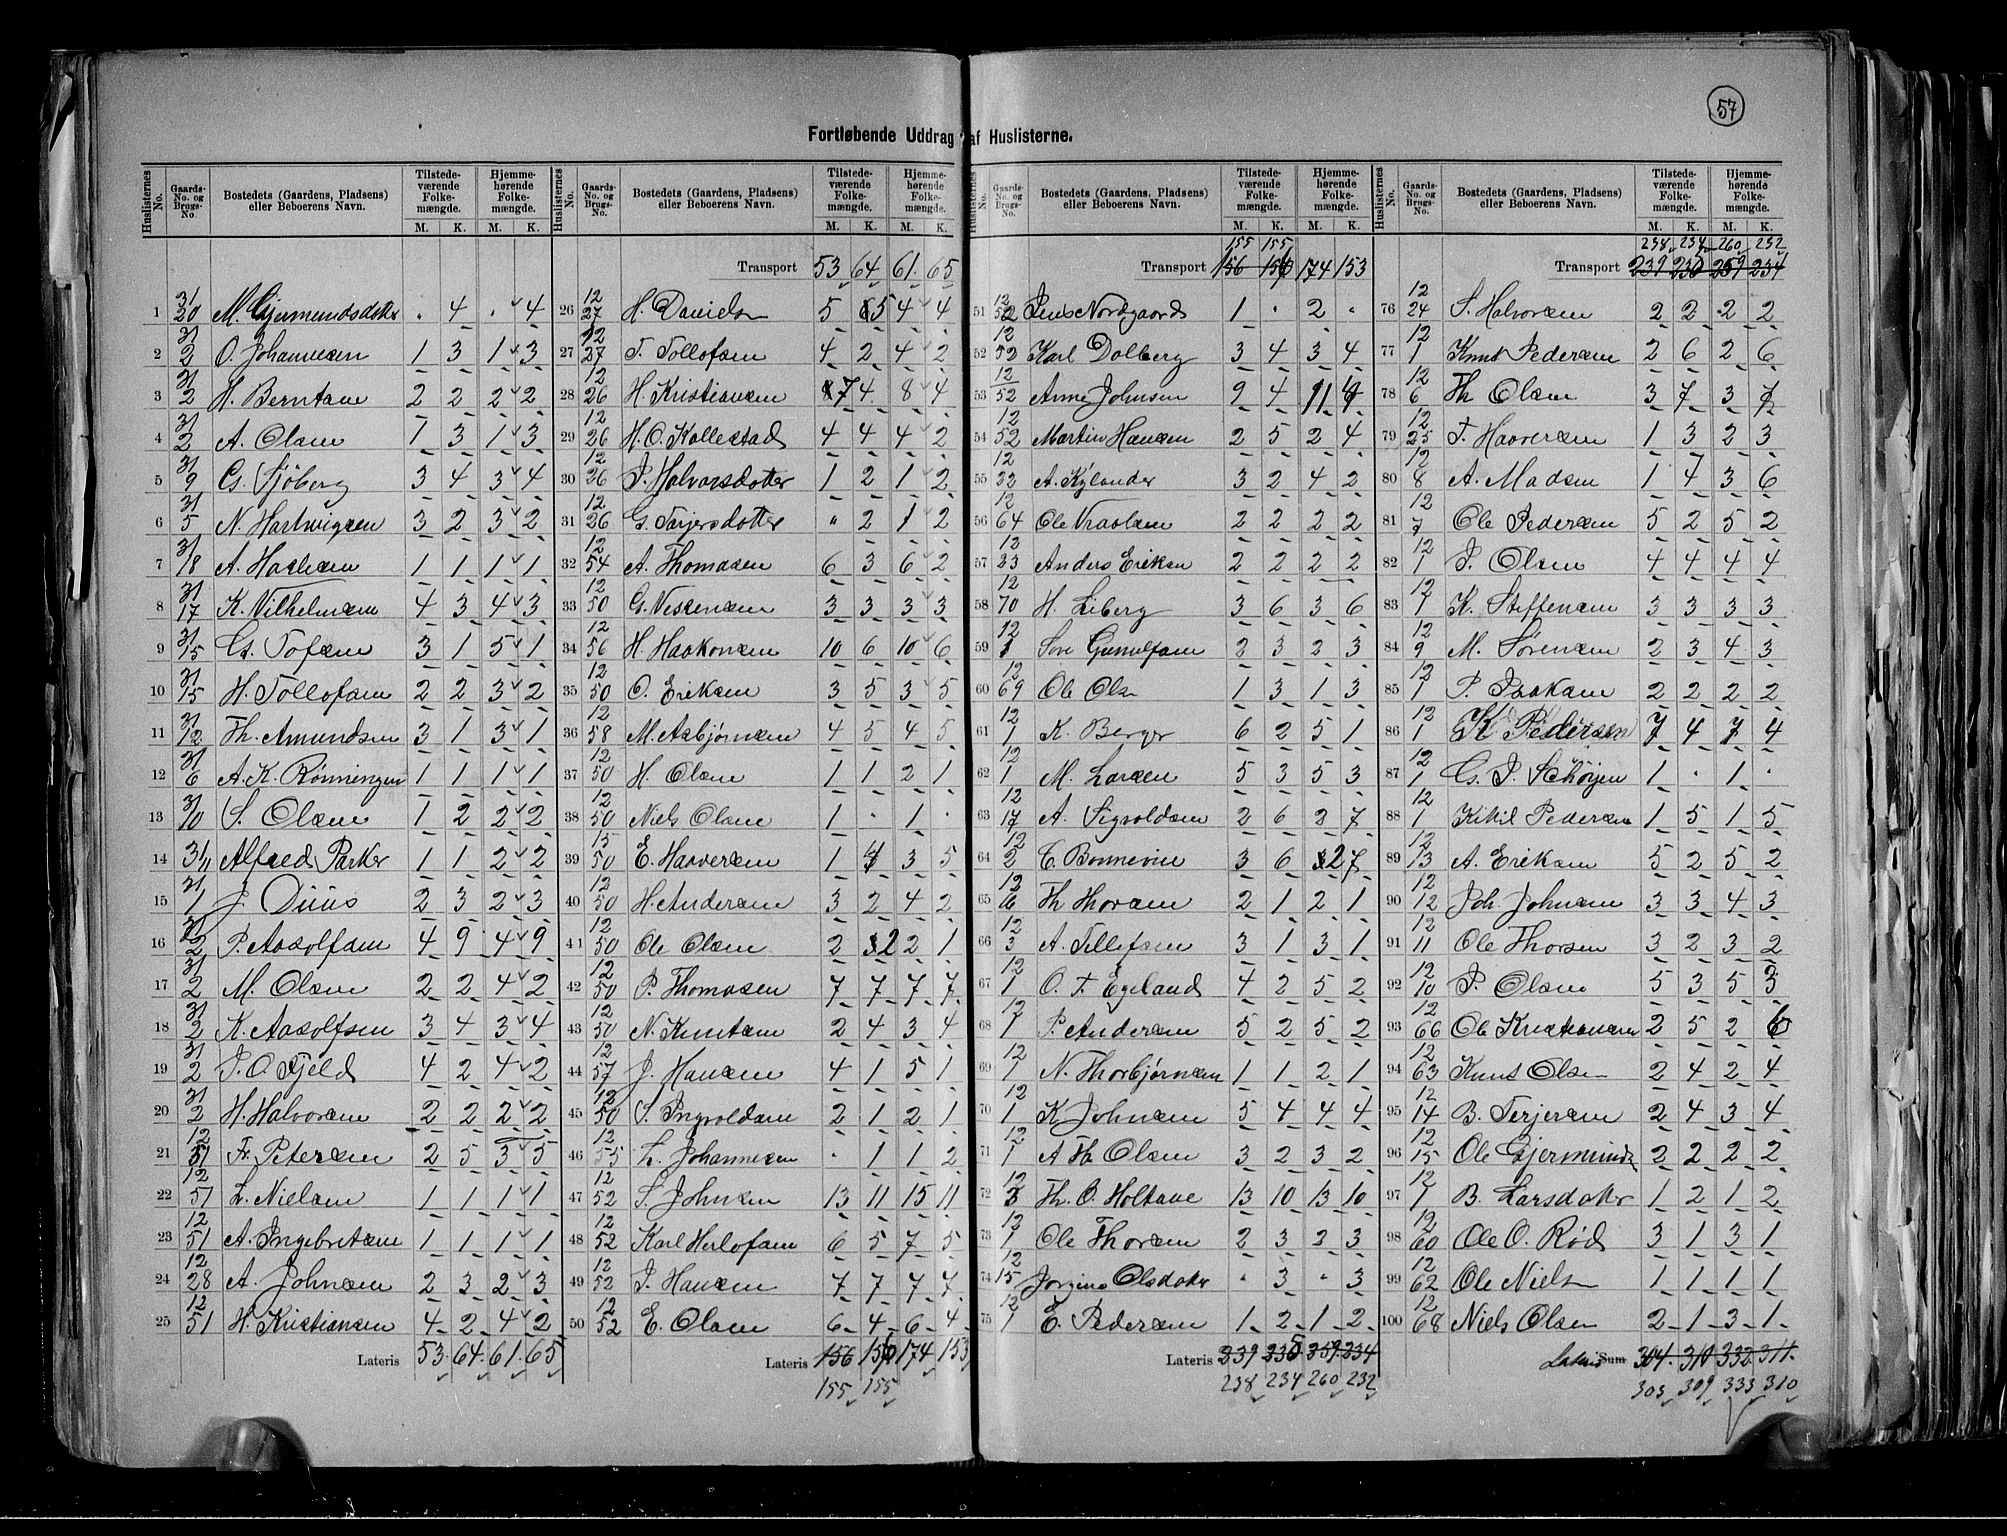 57
Fortløbende Uddrag af Huslisterne.
Huslisternes No. Gaards-No. og Brugs-No. Bostedets (Gaardens, Pladsens) eller Beboerens Navn. Tilstedeværende Folkemængde. M. K. Hjemmehørende Folkemængde. M. K.
1 31/20 M. Gjermundsdatter . 4 . 4
2 31/2 O. Johannesen 1 3 1 3
3 31/2 H. Berntsen 2 2 2 2
4 31/2 A. Olsen 1 3 1 3
5 31/9 G. Sjöberg 3 4 3 4
6 31/5 N. Hartvigsen 3 2 3 2
7 31/18 A. 1 1 1 1
8 31/17 K. Vilhelmsen 4 3 4 3
9 31/15 G. Tofsen 3 1 5 1
10 31/15 H. Tollofsen 2 2 3 2
11 31/12 Th. Amundsen 3 1 3 1
12 31/6 A. K. Rönningen 1 1 1 1
13 31/10 S. Olsen 1 2 2 2
14 31/11 Alfred Parker 1 1 2 2
15 31/1 J. Duus 2 3 2 3
16 31/2 P. Aasolfsen 4 9 4 9
17 31/2 M. Olsen 2 2 4 2
18 31/2 K. Aasolfsen 3 4 3 4
19 31/2 J. O. Fjeld 4 2 4 2
20 31/2 H. Halvorsen 2 2 2 2
21 12/51 Fr. Petersen 2 5 3 5
22 12/51 L. Nielsen 1 1 1 1
23 12/51 A. Ingebretsen 1 1 1 1
24 12/28 A. Johnsen 2 3 2 3
25 12/51 H. Kristiansen 4 2 4 2
Lateris 53 64 61 65
Huslisternes No. Gaards-No. og Brugs-No. Bostedets (Gaardens, Pladsens) eller Beboerens Navn. Tilstedeværende Folkemængde. M. K. Hjemmehørende Folkemængde. M. K.
Transport 53 64 61 65
26 12/27 H. Davidsn 5 5 4 4
27 12/27 T. Tollofsen 4 2 4 2
28 12/26 H. Kristiansen 7 4 8 4
29 12/26 H. O. Kollestad 4 4 4 2
30 12/26 J. Halvorsdotter 1 2 1 2
31 12/26 G. Tarjersdotter " 2 1 2
32 12/54 A. Thomasen 6 3 6 2
33 12/50 G. 3 3 3 3
34 12/56 H. Haakonsen 10 6 10 6
35 12/50 O. Eriksen 3 5 3 5
36 12/58 M. Asbjørnsen 4 5 4 5
37 12/50 H. Olsen 1 1 2 1
38 12/50 Niels Olsen 1 . 1 .
39 15/50 E. Haaversen 1 4 3 5
40 12/50 H. Andersen 3 2 4 2
41 12/50 Ole Olsen 2 2 2 1
42 12/50 P. Thomasen 7 7 7 7
43 12/50 N. Knutsen 2 4 3 4
44 12/57 J. Hansen 4 1 5 1
45 12/50 S. Ingvoldsen 2 1 2 1
46 12/55 L. Johannesen . 1 1 2
47 12/52 S. Johnsen 13 11 15 11
48 12/52 Karl Herlofsen 6 5 7 5
49 12/52 J. Hansen 7 7 7 7
50 12/52 E. Olsen 6 4 6 4
Lateris 156 156 174 153
155 155
Huslisternes No. Gaards-No. og Brugs-No. Bostedets (Gaardens, Pladsens) eller Beboerens Navn. Tilstedeværende Folkemængde. M. K. Hjemmehørende Folkemængde. M. K.
155 155
Transport 156 156 174 153
51 12/52 Jens Nordgaard 1 . 2 .
52 12/52 Karl Dolberg 3 4 3 4
53 12/52 Anne Johnsen 9 4 11 4
54 12/52 Martin Hansen 2 5 2 4
55 12/22 A. Kylander 3 2 4 2
56 12/64 Ole Vraalsen 2 2 2 2
57 12/23 Anders Eriksen 2 2 2 2
58 12/70 H. Liberg 3 6 3 6
59 12/1 Gunulfsen 2 3 2 3
60 12/69 Ole Olsn 1 3 1 3
61 12/1 K. Berger 6 2 5 1
62 12/1 M. Larsen 5 3 5 3
63 12/17 A. Sigvoldsen 2 6 2 7
64 12/2 C. Bonnevie 3 6 2 7
65 12/6 Th Thorsen 2 1 2 1
66 12/3 A. Tellefsen 3 1 3 1
67 12/1 O. T. Egeland 4 2 5 2
68 12/1 P. Andersen 5 2 5 2
69 12/1 N. Thorbjørnsen 1 1 2 1
70 12/1 K. Johnsen 5 4 4 4
71 12/1 A Th. Olsen 3 2 3 2
72 12/1 Th. O. Holtane 13 10 13 10
73 12/1 Ole Thorsen 2 3 2 3
74 12/15 Jorgine Olsdoter . 3 . 3
75 12/1 E. Pedersen 1 2 1 2
Lateris 239 235 259 234
238 234 260 232
Huslisternes No. Gaards-No. og Brugs-No. Bostedets (Gaardens, Pladsens) eller Beboerens Navn. Tilstedeværende Folkemængde. M. K. Hjemmehørende Folkemængde. M. K.
238 234 260 232
Transport 239 235 259 234
76 12/24 S. Halvorsen 2 2 2 2
77 12/1 Knut Pedersen 2 6 2 6
78 12/6 Th Olsen 3 7 3 7
79 12/25 T. Haaversen 1 3 2 3
80 12/8 A. Madsen 1 4 3 6
81 12/7 Ole Pedersen 5 2 5 2
82 12/1 J. Olsen 4 4 4 4
83 12/1 K. Steffensen 3 3 3 3
84 12/9 M. Sørensen 2 3 4 3
85 12/1 P. Isaksen 2 2 2 2
86 12/1 K Pedersen 7 4 7 4
87 12/1 G. J. Schöyen 1 . 1 .
88 12/1 Kittil Pedersen 1 5 1 5
89 12/13 A. Eriksen 5 2 5 2
90 12/12 Joh. Johnsen 3 3 4 3
91 12/11 Ole Thorsen 3 2 3 2
92 12/10 J. Olsen 5 3 5 3
93 12/66 Ole Kristiansen 2 5 2 6
94 12/63 Knut Olsen 2 4 2 4
95 12/14 B. Terjersen 2 4 3 4
96 12/15 Ole Gjermunds 2 2 2 2
97 12/1 B. Larsdoter 1 2 1 2
98 12/60 Ole O. Rød 3 1 3 1
99 12/62 Ole Nielsn 1 1 1 1
100 12/68 Niels Olsen 2 1 3 1
Lateris Sum 304 310 332 311
303 309 333 310